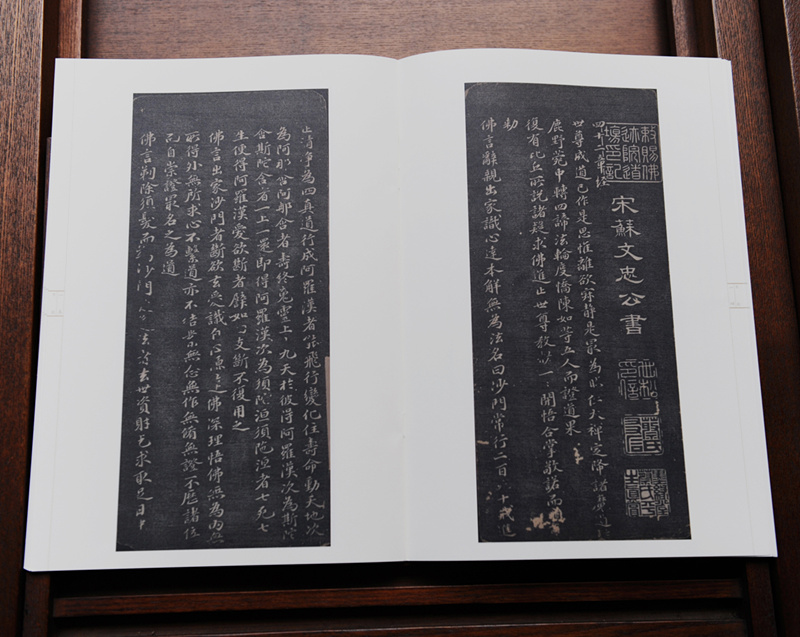 敕賜佛
迹院遺
場印記
宋蘇文忠公書
四十二章經
世尊成道已作是思惟離欲寂靜是最為勝住大禪定降諸魔道
鹿野苑中轉四諦法輪度憍陳如等五人而證道果
復有比丘所說諸疑求佛進止世尊教敕一一開悟合掌敬諾而順
勅
佛言辭親出家識心達本解無為法名曰沙門常行二百五十戒進
止清淨為四真道行成阿羅漢者能飛行變化住壽命動天地次
為阿那含阿那含者壽終魂靈上十九天於彼得阿羅漢次為斯陀
含斯陀含者一上一還即得阿羅漢次為須陀洹須陀洹者七死七
生便得阿羅漢愛欲斷者譬如四支斷不復用之
佛言出家沙門者斷欲去愛識自心源達佛深理悟佛無為內無
所得外無所求心不繫道亦不結業無念無作無脩無證不歷諸位
而自崇最名之為道
佛言剃除鬚髮而為沙門 受 法者去世資財乞求取足日中